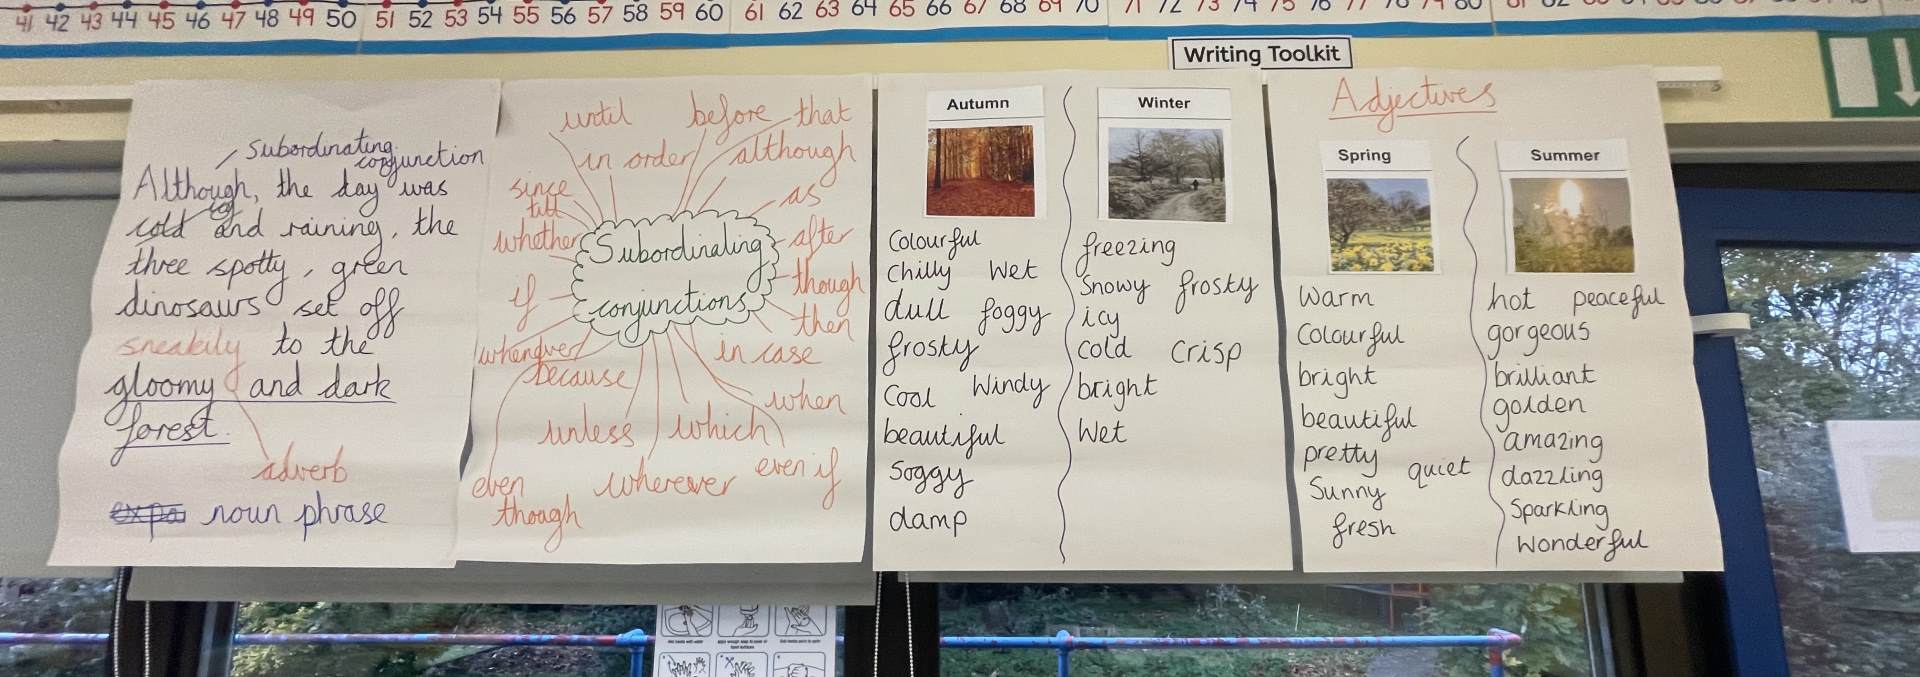 41 42 43 44 45 46 47 48 49 50 51 52 53 54 55 56 57 58 59 60 61 62 63 64 65 66 67 68 69 70 71 72 73 74 75 76 77 78 79 80
Writing Toolkit
Subordinating
conjunction
Although, the day was
cold and raining, the
three spotty, green
dinosaurs set off
sneakily to the
gloomy and dark
forest.
adverb
noun phrase
until before that
in order although
since as
till
whether after
Subordinating
conjunctions
if though
then
whenever in case
because
when
unless which
even if
even wherever
though
Autumn
Colourful
Chilly Wet
dull foggy
frosty
Cool Windy
beautiful
Soggy
damp
Winter
freezing
Snowy frosty
icy
cold Crisp
bright
Wet
Adjectives
Spring
Warm
Colourful
bright
beautiful
pretty quiet
Sunny
fresh
Summer
hot peaceful
gorgeous
brilliant
golden
amazing
dazzling
Sparkling
Wonderful